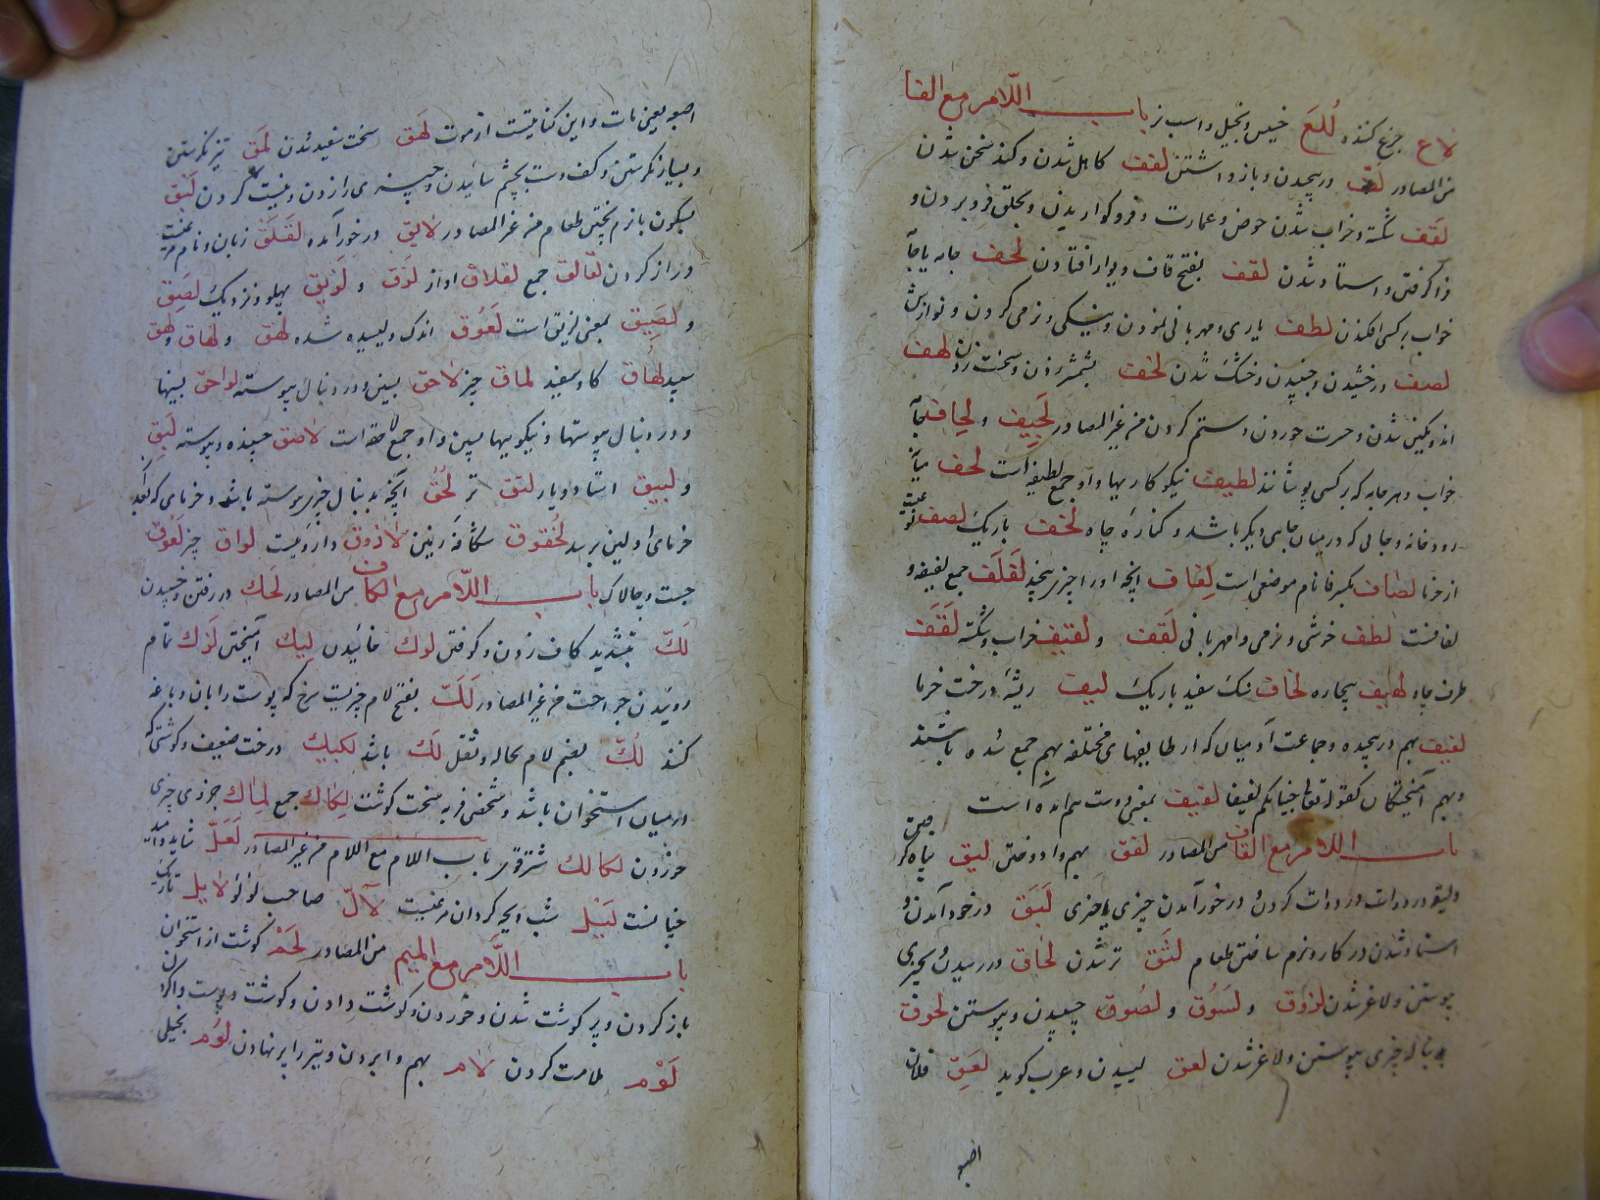 باب اللّام مع الفا
لاع جزع کننده لُلَع خسیس و بخیل و اسب نر
من المصادر لف در پیچیدن و باز داشتن لفف کاهل شدن و کند سخن شدن
لَقَف شکسته و خراب شدن حوض و عمارت و فرو کواریدن و بحلق فرو بردن و
فرا کرفتن و استاد شدن لقف بفتح قاف دیوار افتادن لحف جامه یا جامه
خواب بر کسی افکندن لطف یاری و مهربانی نمودن و نیکی و نرمی کردن و نوازش
لصف درخشیدن و چسپیدن و خشک شدن لخف بشمشیر زدن و سخت زدن لهف
اندوهکین شدن و حسرت خوردن و ستم کردن من غیر المصادر لَحِیف و لِحاف جامه
خواب و هر جامه که بر کسی پوشانند لطیف نیکو کاریها و او جمع لطیفه است لحف میان
رودخانه و جائی که در میان جاهی دیکر باشد و کناره چاه لخف باریک لصف
از خرما لصاف بکسر فا نام موضعی است لِفاف انچه او را بچیزی پیچند لَفَلَف جمع لفیفه و
لفافست لطف خوشی و نرمی و مهربانی لَقف و لقیف خراب و شکسته لَقَف
طرف چاه لهیف بیچاره لخاف سنک سفید باریک لیف ریشه درخت خرما
لفیف بهم در پیچیده و جماعت آدمیان که از طایفهای مختلفه بهم جمع شده باشند
و بهم آمیختکان کقوله تعالی جئنا بکم لفیفا لفیف بمعنی دوست هم آمده است
باب اللام مع القاف من المصادر لفق بهم وا دوختن لیق سیاه کر
ولیقه در دوات و دوات کردن و در خور آمدن چیزی با چیزی لَبَق در خود آمدن و
استاد شدن در کار و نرم ساختن طعام لَثَق تر شدن لحاق در رسیدن بچیزی
پیوستن و لاغر شدن لزوق و لسوق و لصوق چسپیدن و پیوستن لحوق
بدنباله چیزی پیوستن و لاغر شدن لعق لیسیدن و عرب کوید لَعِقَ فلان
اصبعه
اصبعه یعنی مات و این کنایتست از موت لهق سخت سفید شدن لمق تیز نکرستن
و بسیار نکرستن و کف دست بچشم سائیدن و چیزی را زدن و نبشت کردن لَبْق
بسکون با نرم پختن طعام من غیر المصادر لائق در خور آمده لَقلَق زبان و نام مرغیست
دراز کردن لقالق جمع لقلاق اواز لزق و لزیق پهلو و نزدیک لصق
و لصیق بمعنی لزیق است لَعُوق اندک و لیسیده شده لهق و لهاق و لهق
سپید لهاق کاو سفید لماق چیز لاحق پسین و در دنبال پیوسته لواحق پسینها
و در دنبال پیوستها و نیکوییها پسین و او جمع لاحقه است لاصق چسپنده و پیوسته لَبِق
و لبیق استاد و یار لثق تر لَحَق آنچه بدنبال چیزی پیوسته باشد و خرمای که بعد
خرمای اولین برسد لُخقوق شکافه زمین لاذوق داروئیست لواق چیز لعوق
چست و چالاک باب اللّام مع الکاف من المصادر لحک در رفتن و چسپیدن
لَکّ بتشدید کاف زدن و کوفتن لوک خائیدن لبک آمیختن لَزَک تمام
روئیدن جراحت من غیر المصادر لَکّ بفتح لام چیزیست سرخ که پوست را بان دباغه
کنند لُکّ بضم لام نحاله و ثقل لک باشد لکیک درخت ضعیف و کوشتی که
در میان استخوان باشد و شخصی فربه سخت کوشت لِکاک جمع لماک چیزی
خوردن لکالک شتر قوی باب اللام مع اللام من غیر المصادر لَعَلّ شاید و امید
خیانست لیل شب و بچه کروان مرغیست لآلّ صاحب لؤلؤ لایل تاریک
باب اللّام مع المیم من المصادر لحم کوشت از استخوان
باز کردن و پر کوشت شدن و خوردن و کوشت دادن و کوشت و پوست واکرد
لَوْم ملامت کردن لام بهم وا بردن و تیر را پر نهادن لُوْم بخیلی